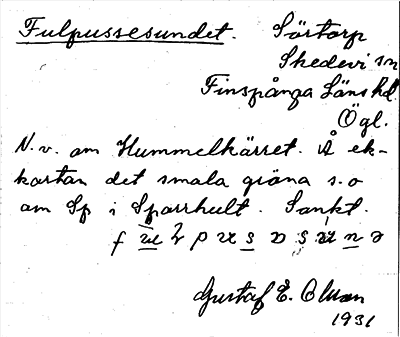 Fulpussesundet. Sörtorp
Skedevi sn
Finspånga Läns hd.
Ögl.
N.v. om Hummelkärret. Å ek-
kartan det smala gröna s.o
om Sp i Sparrhult. Sankt.
Gustaf E. Olson
1931